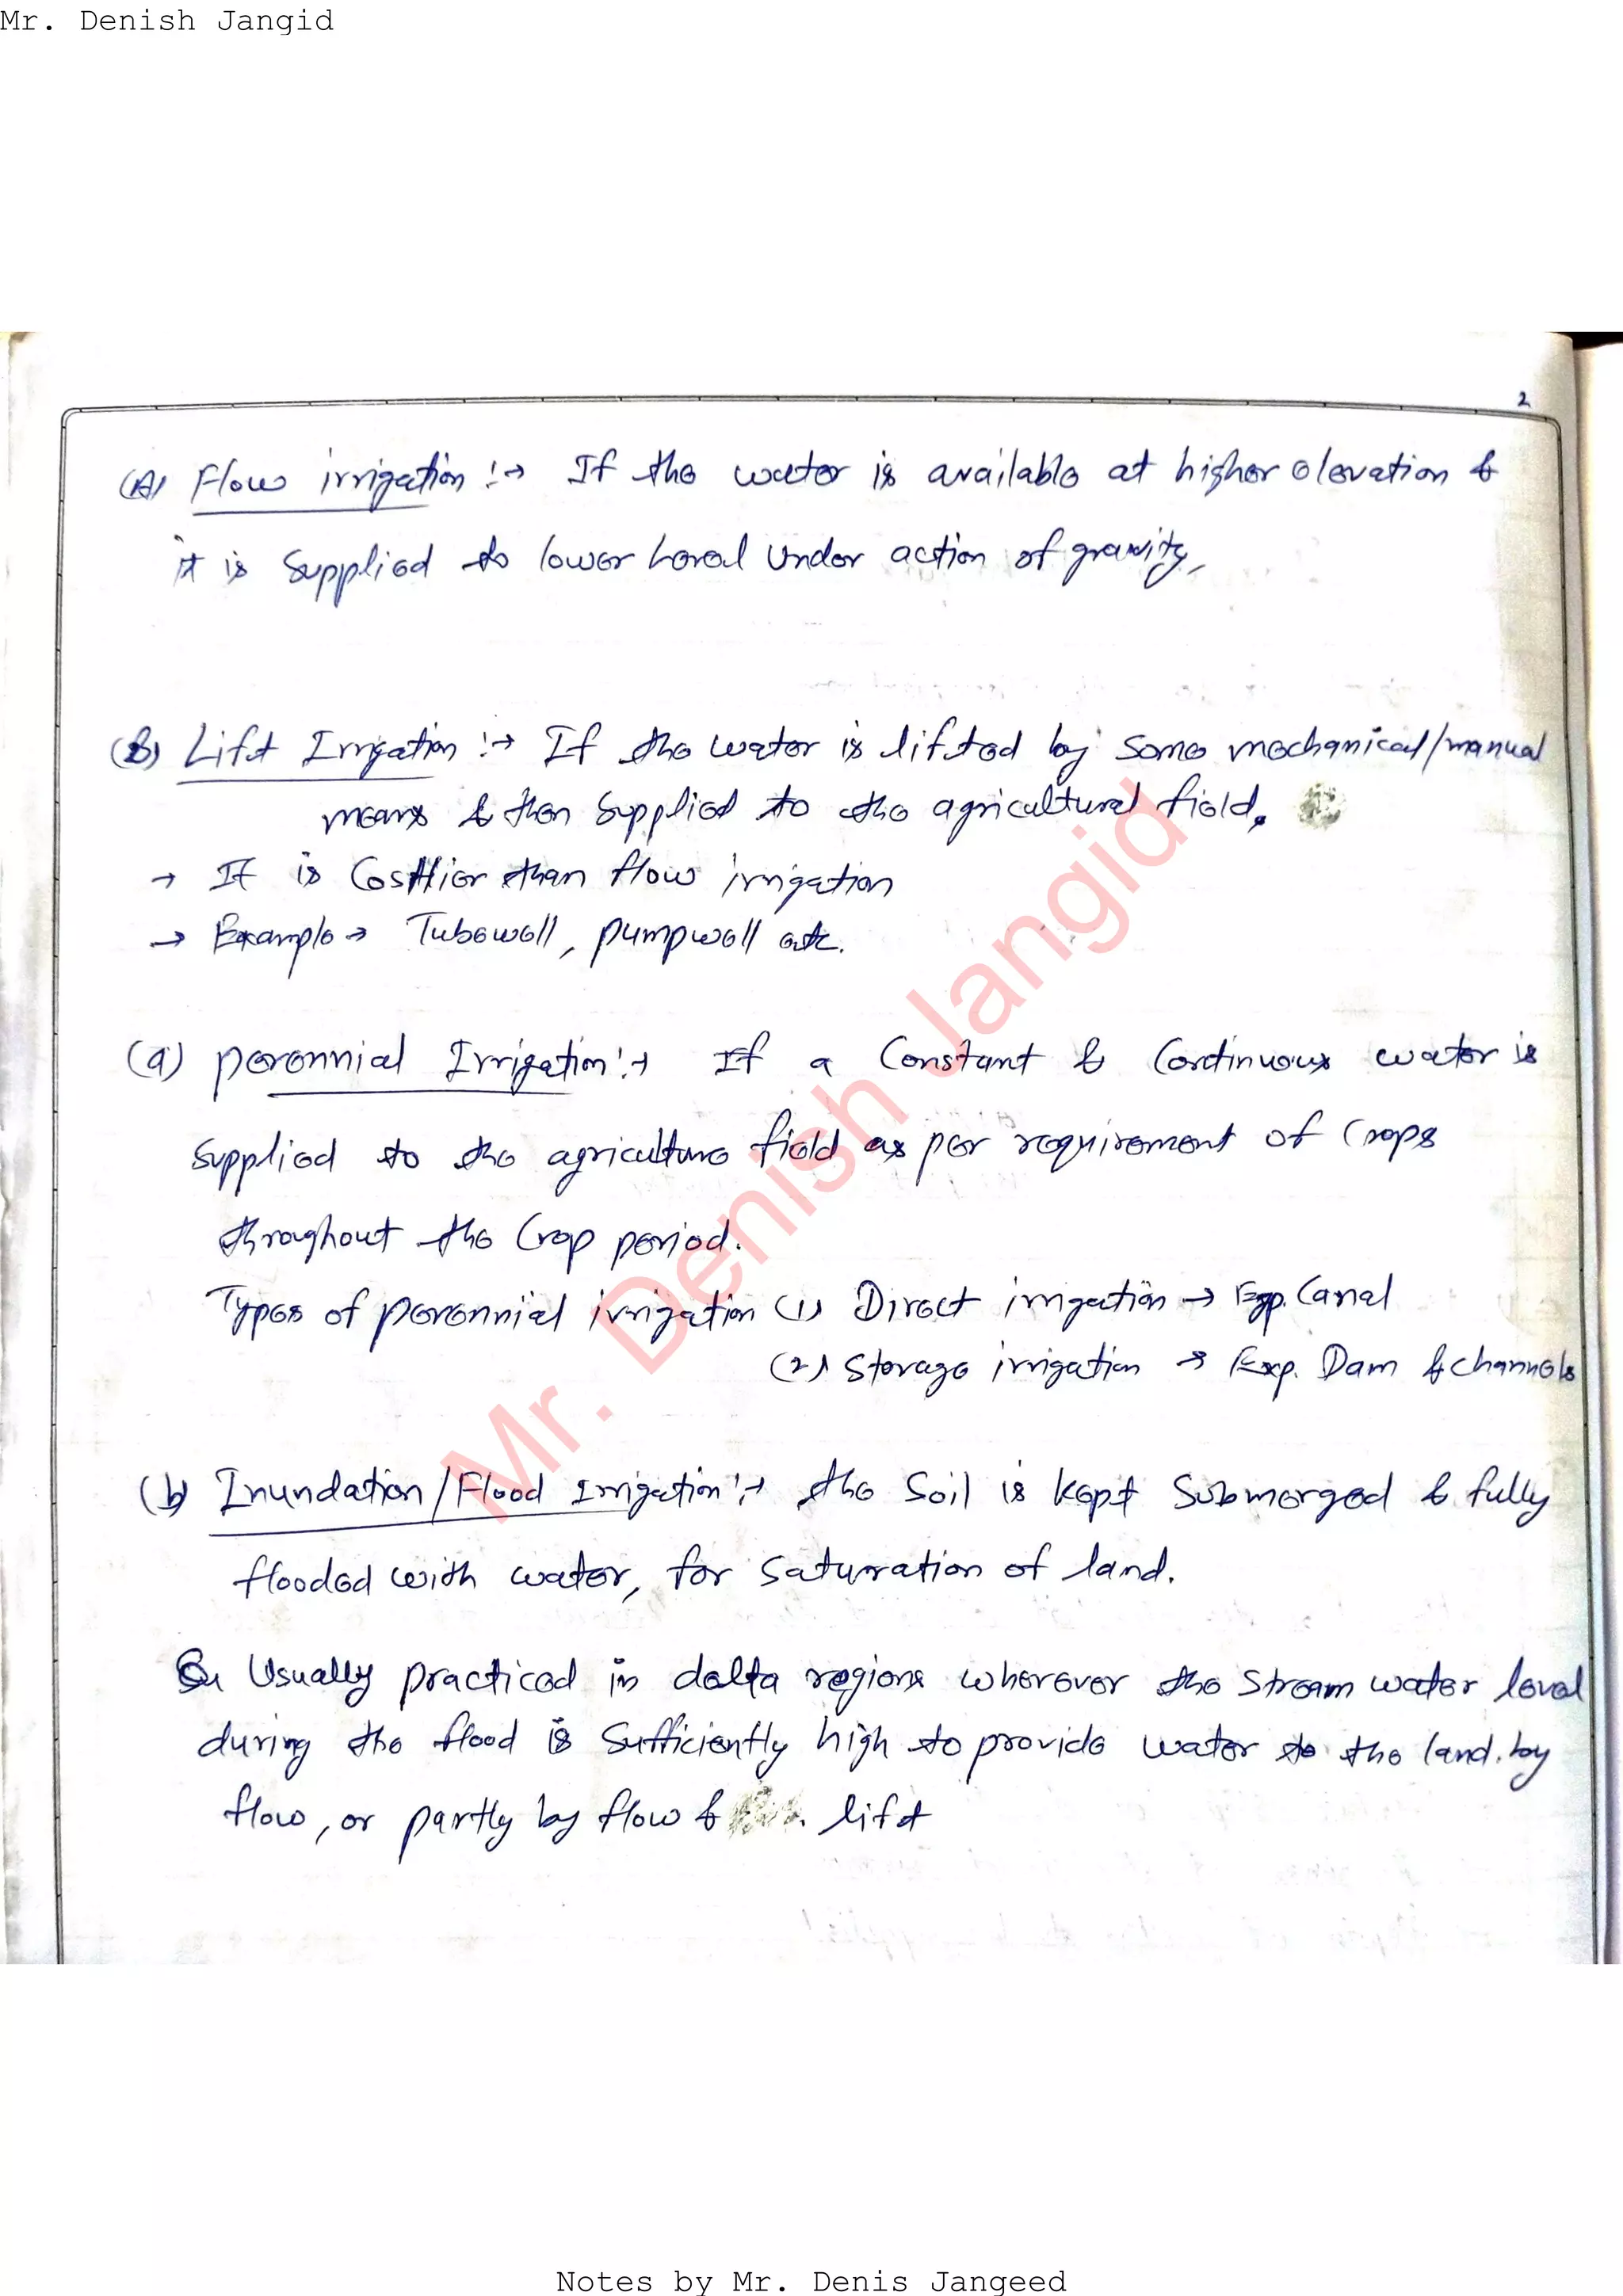 Mr. Denish Jangid
2
(A) Flow irrigation :→ If the water is available at higher elevation &
it is supplied to lower level under action of gravity,
(B) Lift Irrigation :→ If the water is lifted by some mechanical/manual
means & then supplied to the agricultural field.
→ It is Costlier than flow irrigation
→ Example → Tubewell, pumpwell etc.
(a) perennial Irrigation :→ If a Constant & Continuous water is
supplied to the agriculture field as per requirement of Crops
throughout the Crop period.
Types of perennial irrigation (1) Direct irrigation → Exp. Canal
(2) Storage irrigation → Exp. Dam & channels
(b) Inundation/Flood Irrigation :→ the Soil is kept Submerged & fully
flooded with water, for saturation of land.
Usually practiced in delta regions wherever the stream water level
during the flood is sufficiently high to provide water to the land. by
flow, or partly by flow & lift
Mr. Denish Jangid
Notes by Mr. Denis Jangeed